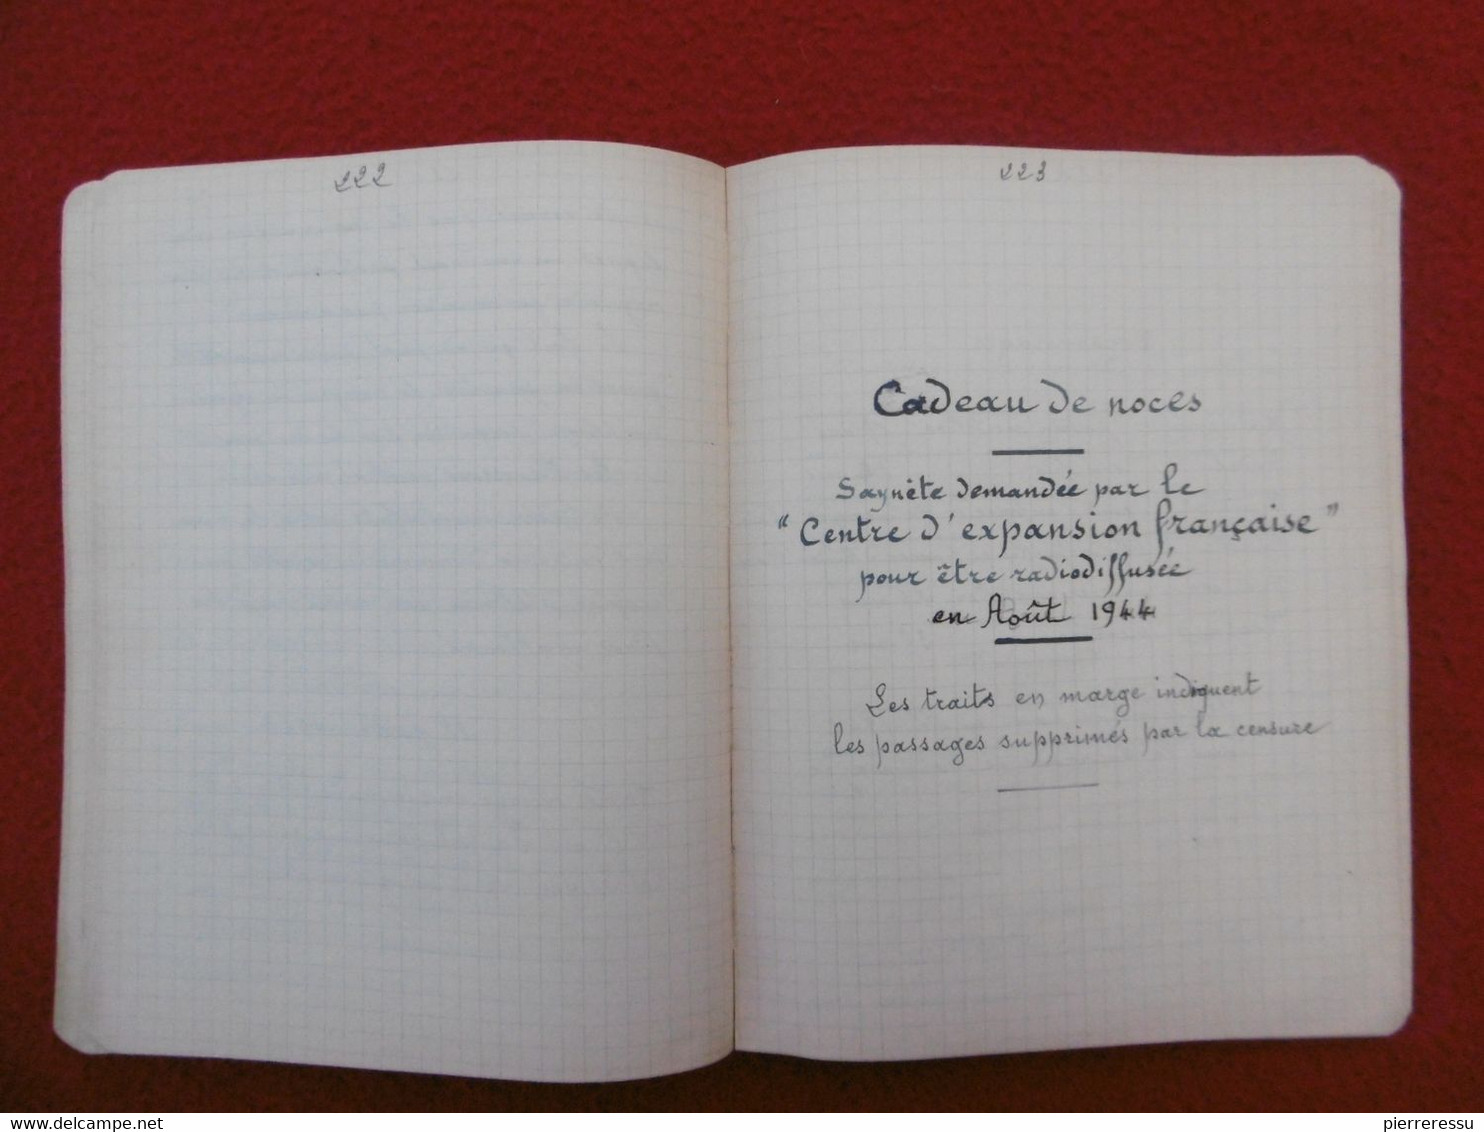 222
223
Cadeau de noces
Saynète demandée par le
"Centre d'expansion française"
pour être radiodiffusée
en Août 1944
Les traits en marge indiquent
les passages supprimés par la censure
www.delcampe.net
pierreressu